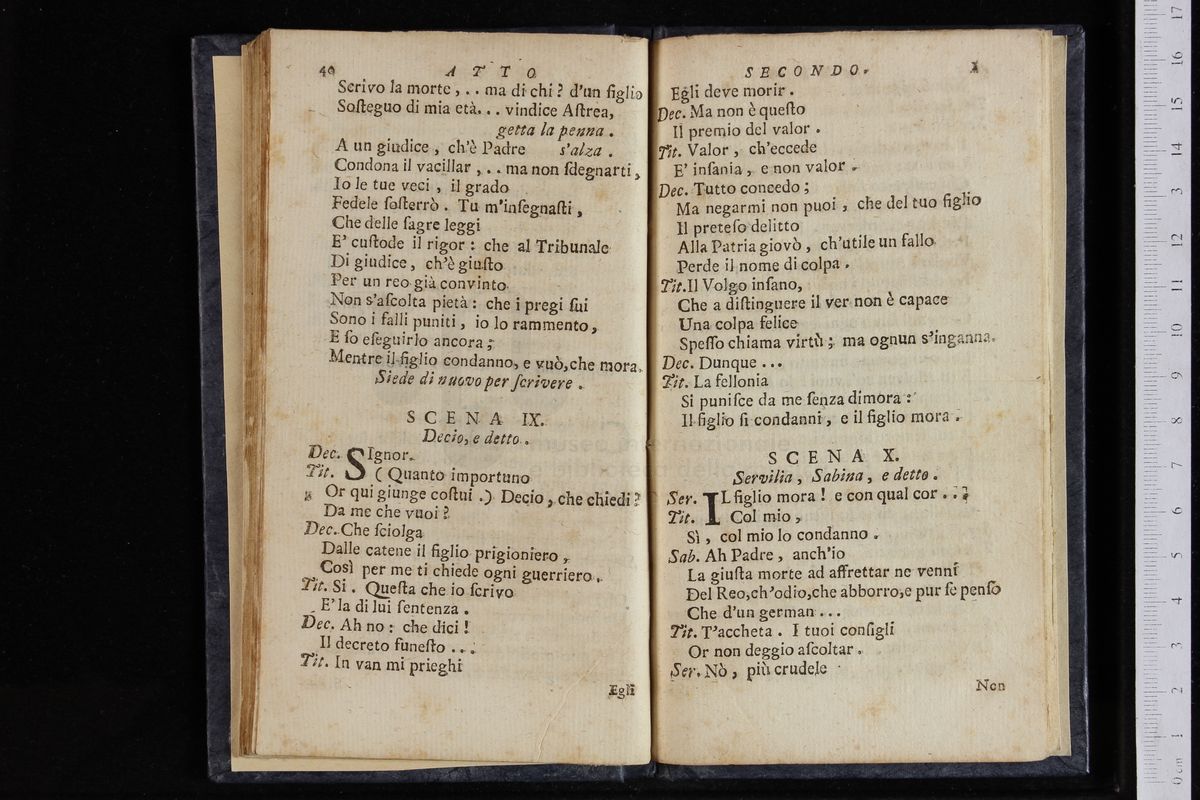 40 ATTO
Scrivo la morte , . . ma di chi ? d'un figlio
Soſteguo di mia età. . . vindice Aſtrea,
getta la penna .
A un giudice , ch'è Padre s'alza .
Condona il vacillar , . . ma non ſdegnarti ,
Io le tue veci , il grado
Fedele ſoſterrò . Tu m'inſegnaſti ,
Che delle ſagre leggi
E' cuſtode il rigor : che al Tribunale
Di giudice , ch'è giuſto
Per un reo già convinto
Non s'aſcolta pietà : che i pregi ſui
Sono i falli puniti , io lo rammento ,
E ſo eſeguirlo ancora ;
Mentre il figlio condanno, e vuò,che mora.
Siede di nuovo per ſcrivere .
SCENA IX.
Decio, e detto .
Dec. SIgnor.
Tit. ( Quanto importuno
Or qui giunge coſtui .) Decio , che chiedi ?
Da me che vuoi ?
Dec. Che ſciolga
Dalle catene il figlio prigioniero ,
Così per me ti chiede ogni guerriero .
Tit. Si . Queſta che io ſcrivo
E' la di lui ſentenza .
Dec. Ah no : che dici !
Il decreto funeſto . . .
Tit. In van mi prieghi
Egli
SECONDO.
Egli deve morir .
Dec. Ma non è queſto
Il premio del valor .
Tit. Valor , ch'eccede
E' inſania , e non valor .
Dec. Tutto concedo ;
Ma negarmi non puoi , che del tuo figlio
Il preteſo delitto
Alla Patria giovò , ch'utile un fallo
Perde il nome di colpa .
Tit. Il Volgo inſano,
Che a diſtinguere il ver non è capace
Una colpa felice
Speſſo chiama virtù ; ma ognun s'inganna.
Dec. Dunque . . .
Tit. La fellonia
Si puniſce da me ſenza dimora :
Il figlio ſi condanni , e il figlio mora .
SCENA X.
Servilia , Sabina , e detto .
Ser. IL figlio mora ! e con qual cor . . ?
Tit. Col mio ,
Sì , col mio lo condanno .
Sab. Ah Padre , anch'io
La giuſta morte ad affrettar ne venni
Del Reo,ch'odio,che abborro,e pur ſe penſo
Che d'un german . . .
Tit. T'accheta . I tuoi conſigli
Or non deggio aſcoltar .
Ser. Nò , più crudele
Non